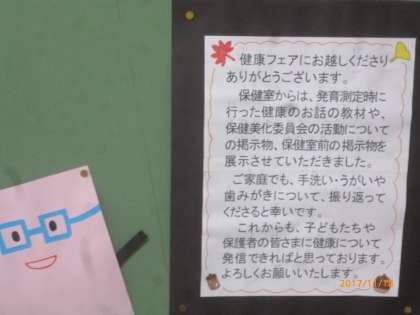 健康フェアにお越しくださり
ありがとうございます。
保健室からは、発育測定時に
行った健康のお話の教材や、
保健美化委員会の活動について
の掲示物、保健室前の掲示物を
展示させていただきました。
ご家庭でも、手洗い・うがいや
歯みがきについて、振り返って
くださると幸いです。
これからも、子どもたちや
保護者の皆さまに健康について
発信できればと思っております。
よろしくお願いいたします。